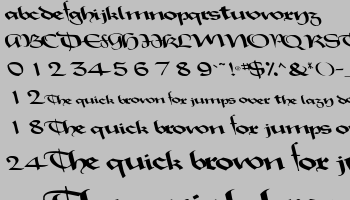 abcdefghijklmnopqrstuvwxyz
ABCDEFGHIJKLMNOPQRST
0 1 2 3 4 5 6 7 8 9
1 2 The quick brown fox jumps over the lazy
1 8 The quick brown fox jumps
24 The quick brown fox